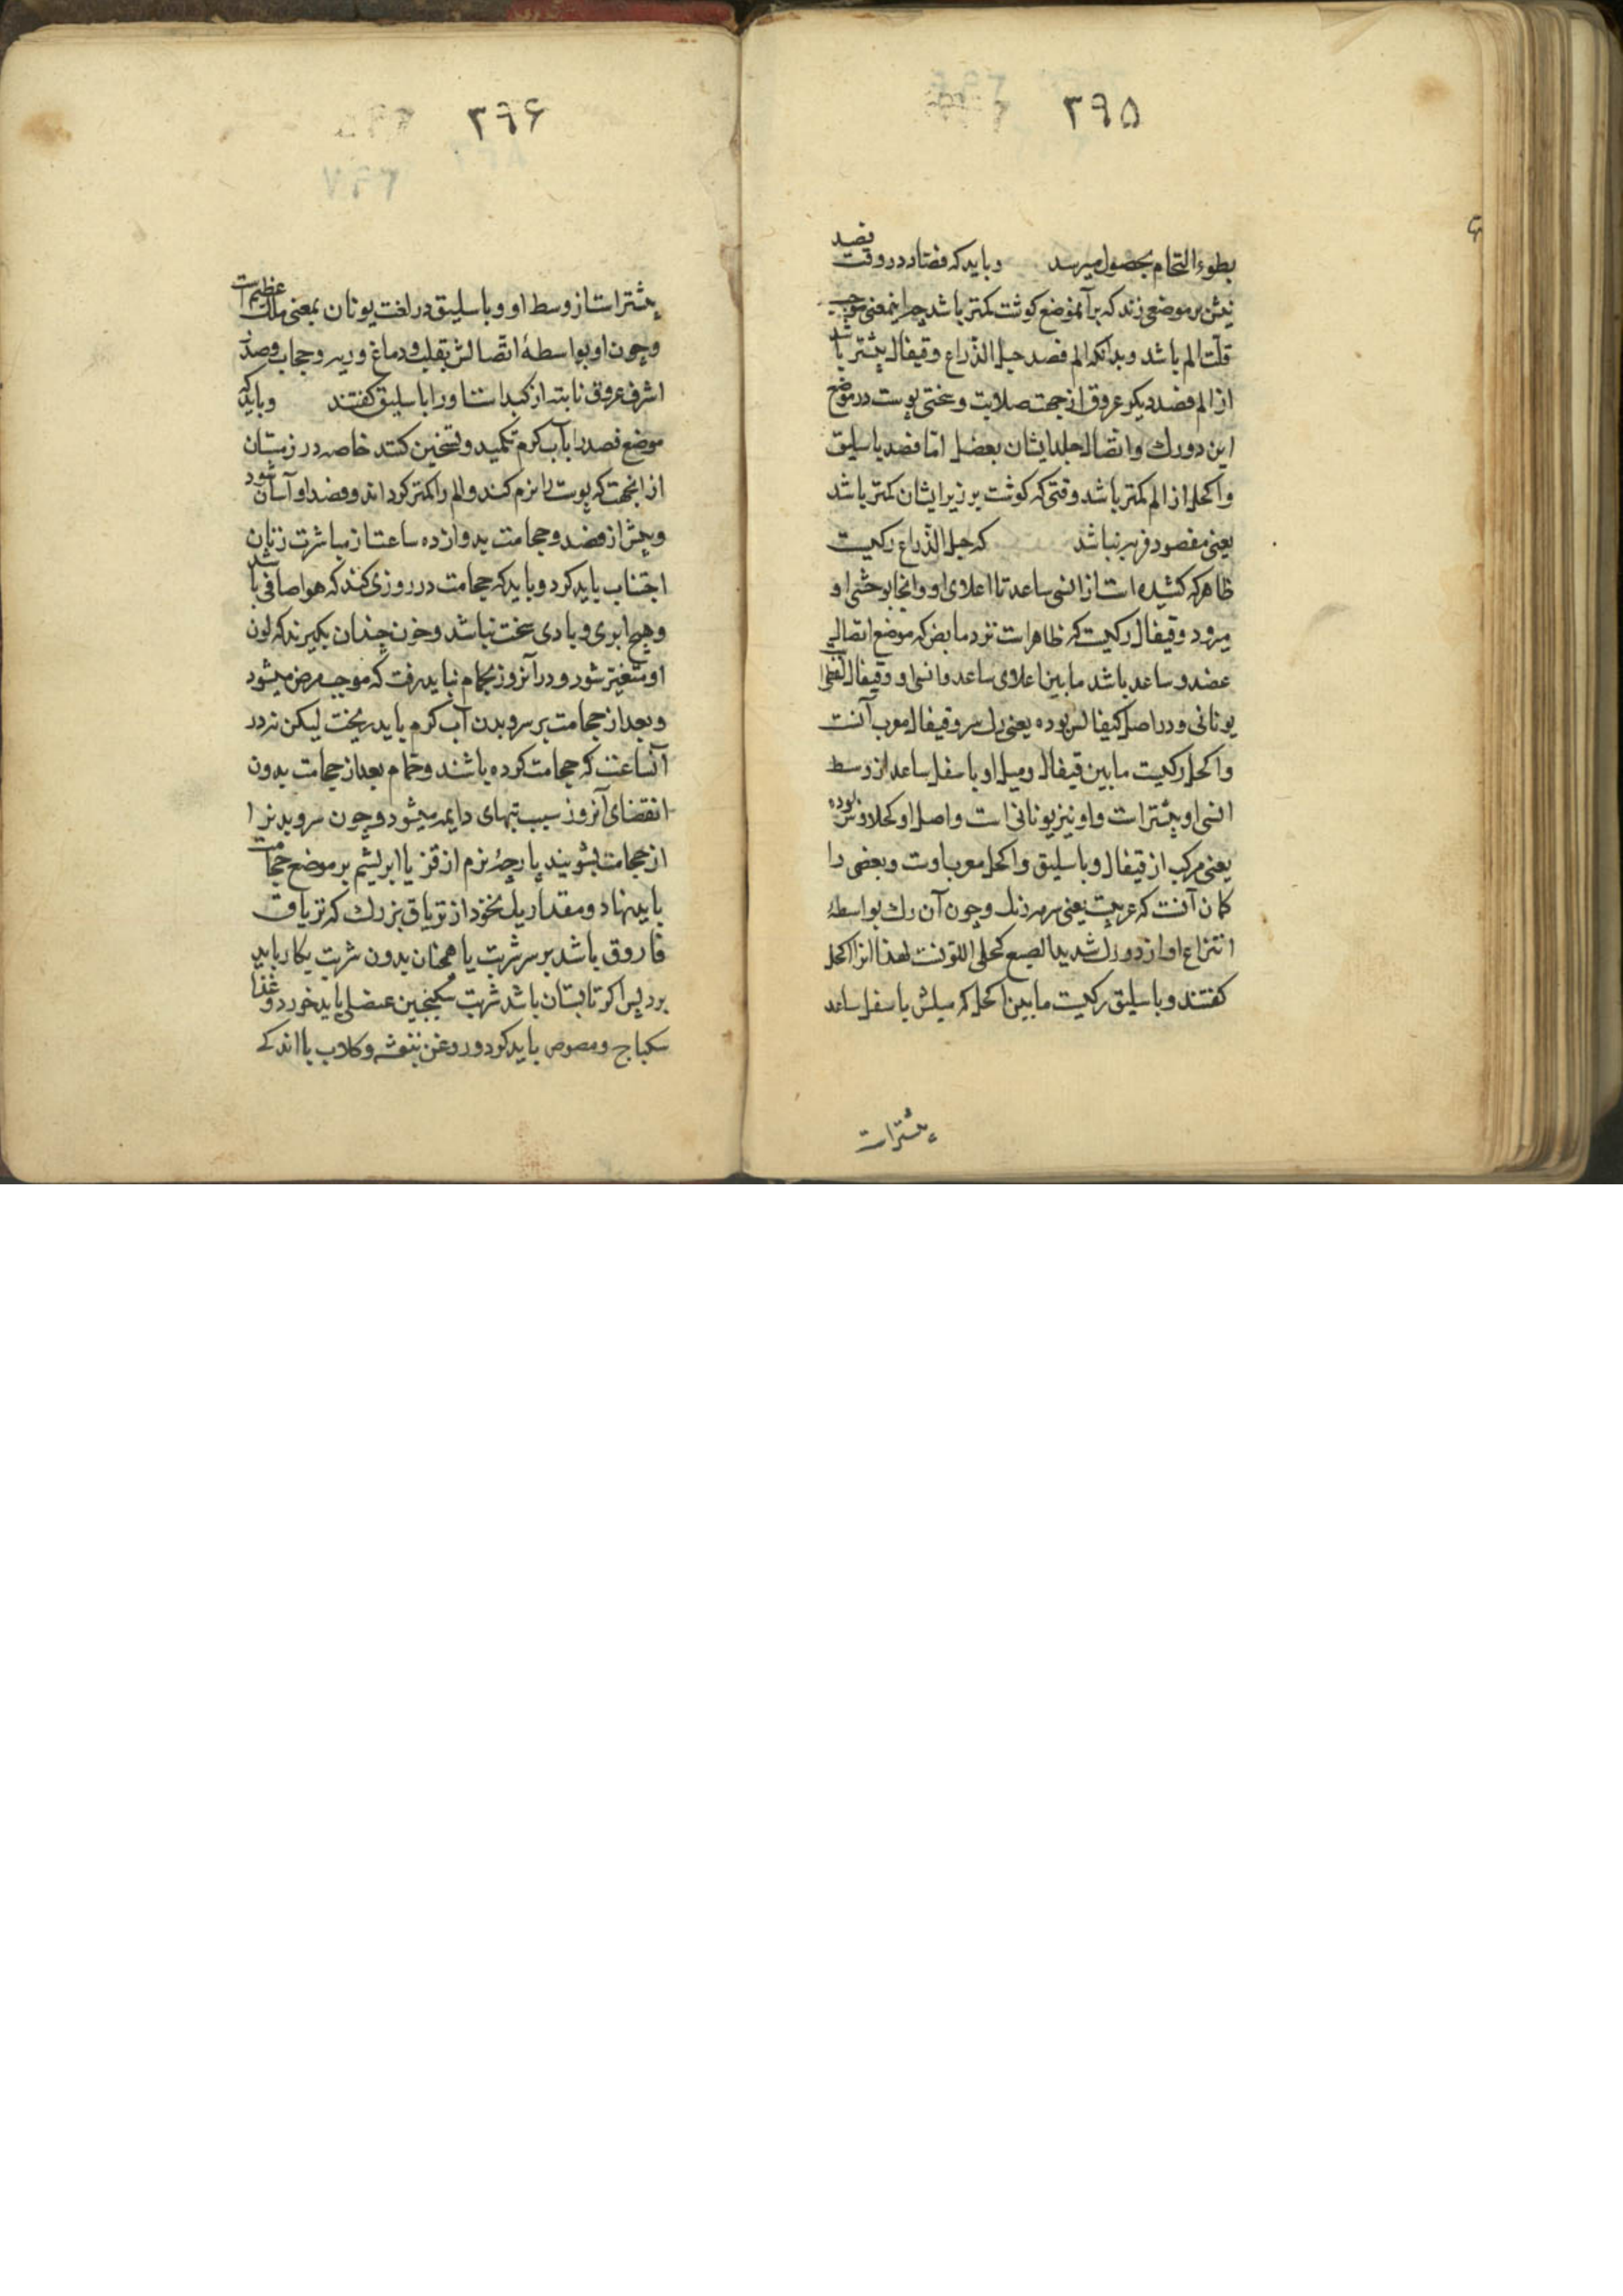 ۳۹۵
بطوء التحام بحصول میرسد وباید که فصاد در وقت فصد
نیش بر موضعی زند که بر آنموضع کوشت کمتر باشد چه اینمعنی موجب
قلت الم باشد وبدانکه الم فصد حبل الذّراع وقیفال بیشتر باشد
از الم فصد دیکر عروق از جهت صلابت وسختی پوست در موضع
این دو رك واتصال جلد ایشان بعضل امّا فصد باسلیق
واکحل از الم کمتر باشد وقتی که کوشت بر زیر ایشان کمتر باشد
یعنی مفصود فربه نباشد که حبل الذّراع رکیست
ظاهر که کشیده است از انسی ساعد تا اعلای او وانجا بوحشی او
میرود وقیفال رکیست که ظاهر است نزد مابض که موضع اتصال
عضد وساعد باشد مابین اعلای ساعد وانسی او وقیفال لفظی
یونانی ودر اصل کیفالس بوده یعنی رك سر وقیفال معرب آنست
واکحل رکیست مابین قیفال ومیل او باسفل ساعد از وسط
انسی او بیشتر است واو نیز یونانی است واصل او کحلاوس بوده
یعنی مرکب از قیفال وباسلیق واکحل معرب اوست وبعضی را
کمان آنست که عربیست یعنی سرمه رنك وچون آن رك بواسطهٔ
انتزاع او از دو رك شدید الصبع کحلی اللونست لهذا انرا اکحل
کفتند وباسلیق رکیست مابین اکحل که میلش باسفل ساعد
بیشتر است
۳۹۶
بیشتر است از وسط او وباسلیق در لغت یونان بمعنی ملك عظیم است
وچون او بواسطهٔ اتّصالش بقلب ودماغ وریه وحجاب وصدر
اشرف عروق نابته از کبد است اورا باسلیق کفتند وباید که
موضع فصد را بآب کرم تکمید وتسخین کنند خاصه در زمستان
از انجهت که پوست را نرم کند والم را کمتر کرداند وفصد او آسان شود
وپیش از فصد وحجامت بدوازده ساعت از مباشرت زنان
اجتناب باید کرد وباید که حجامت در روزی کنند که هوا صافی باشد
وهیچ ابری وبادی سخت نباشد وخون چندان بکیرند که لون
او متغیّر شود ودر آنروز بحمام نباید رفت که موجب مرض میشود
وبعد از حجامت بر سر وبدن آب کرم باید ریخت لیکن نه در
آنساعت که حجامت کرده باشند وحمّام بعد از حجامت بدون
انقضای آنروز سبب تبهای دایمه میشود وچون سر وبدنرا
از حجامت بشویند پارچهٔ نرم از قز یا ابریشم بر موضع حجامت
باید نهاد ومقدار یك نخود از تریاق بزرك که تریاق
فاروق باشد بر سر شربت یا همچنان بدون شربت بکار باید
برد پس اکر تابستان باشد شربت سکنجبین عنصلی باید خورد وغذا
سکباج ومصوص باید کرد وروغن بنفشه وکلاب با اندکے